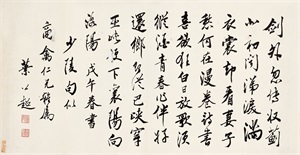 劍外忽傳收薊
北初聞涕淚滿
衣裳却看妻子
愁何在漫卷詩書
喜欲狂白日放歌須
縱酒青春作伴好
還鄉即從巴峽穿
巫峽便下襄陽向
洛陽 戊午春書
少陵句似
商禽仁兄雅屬
葉公超